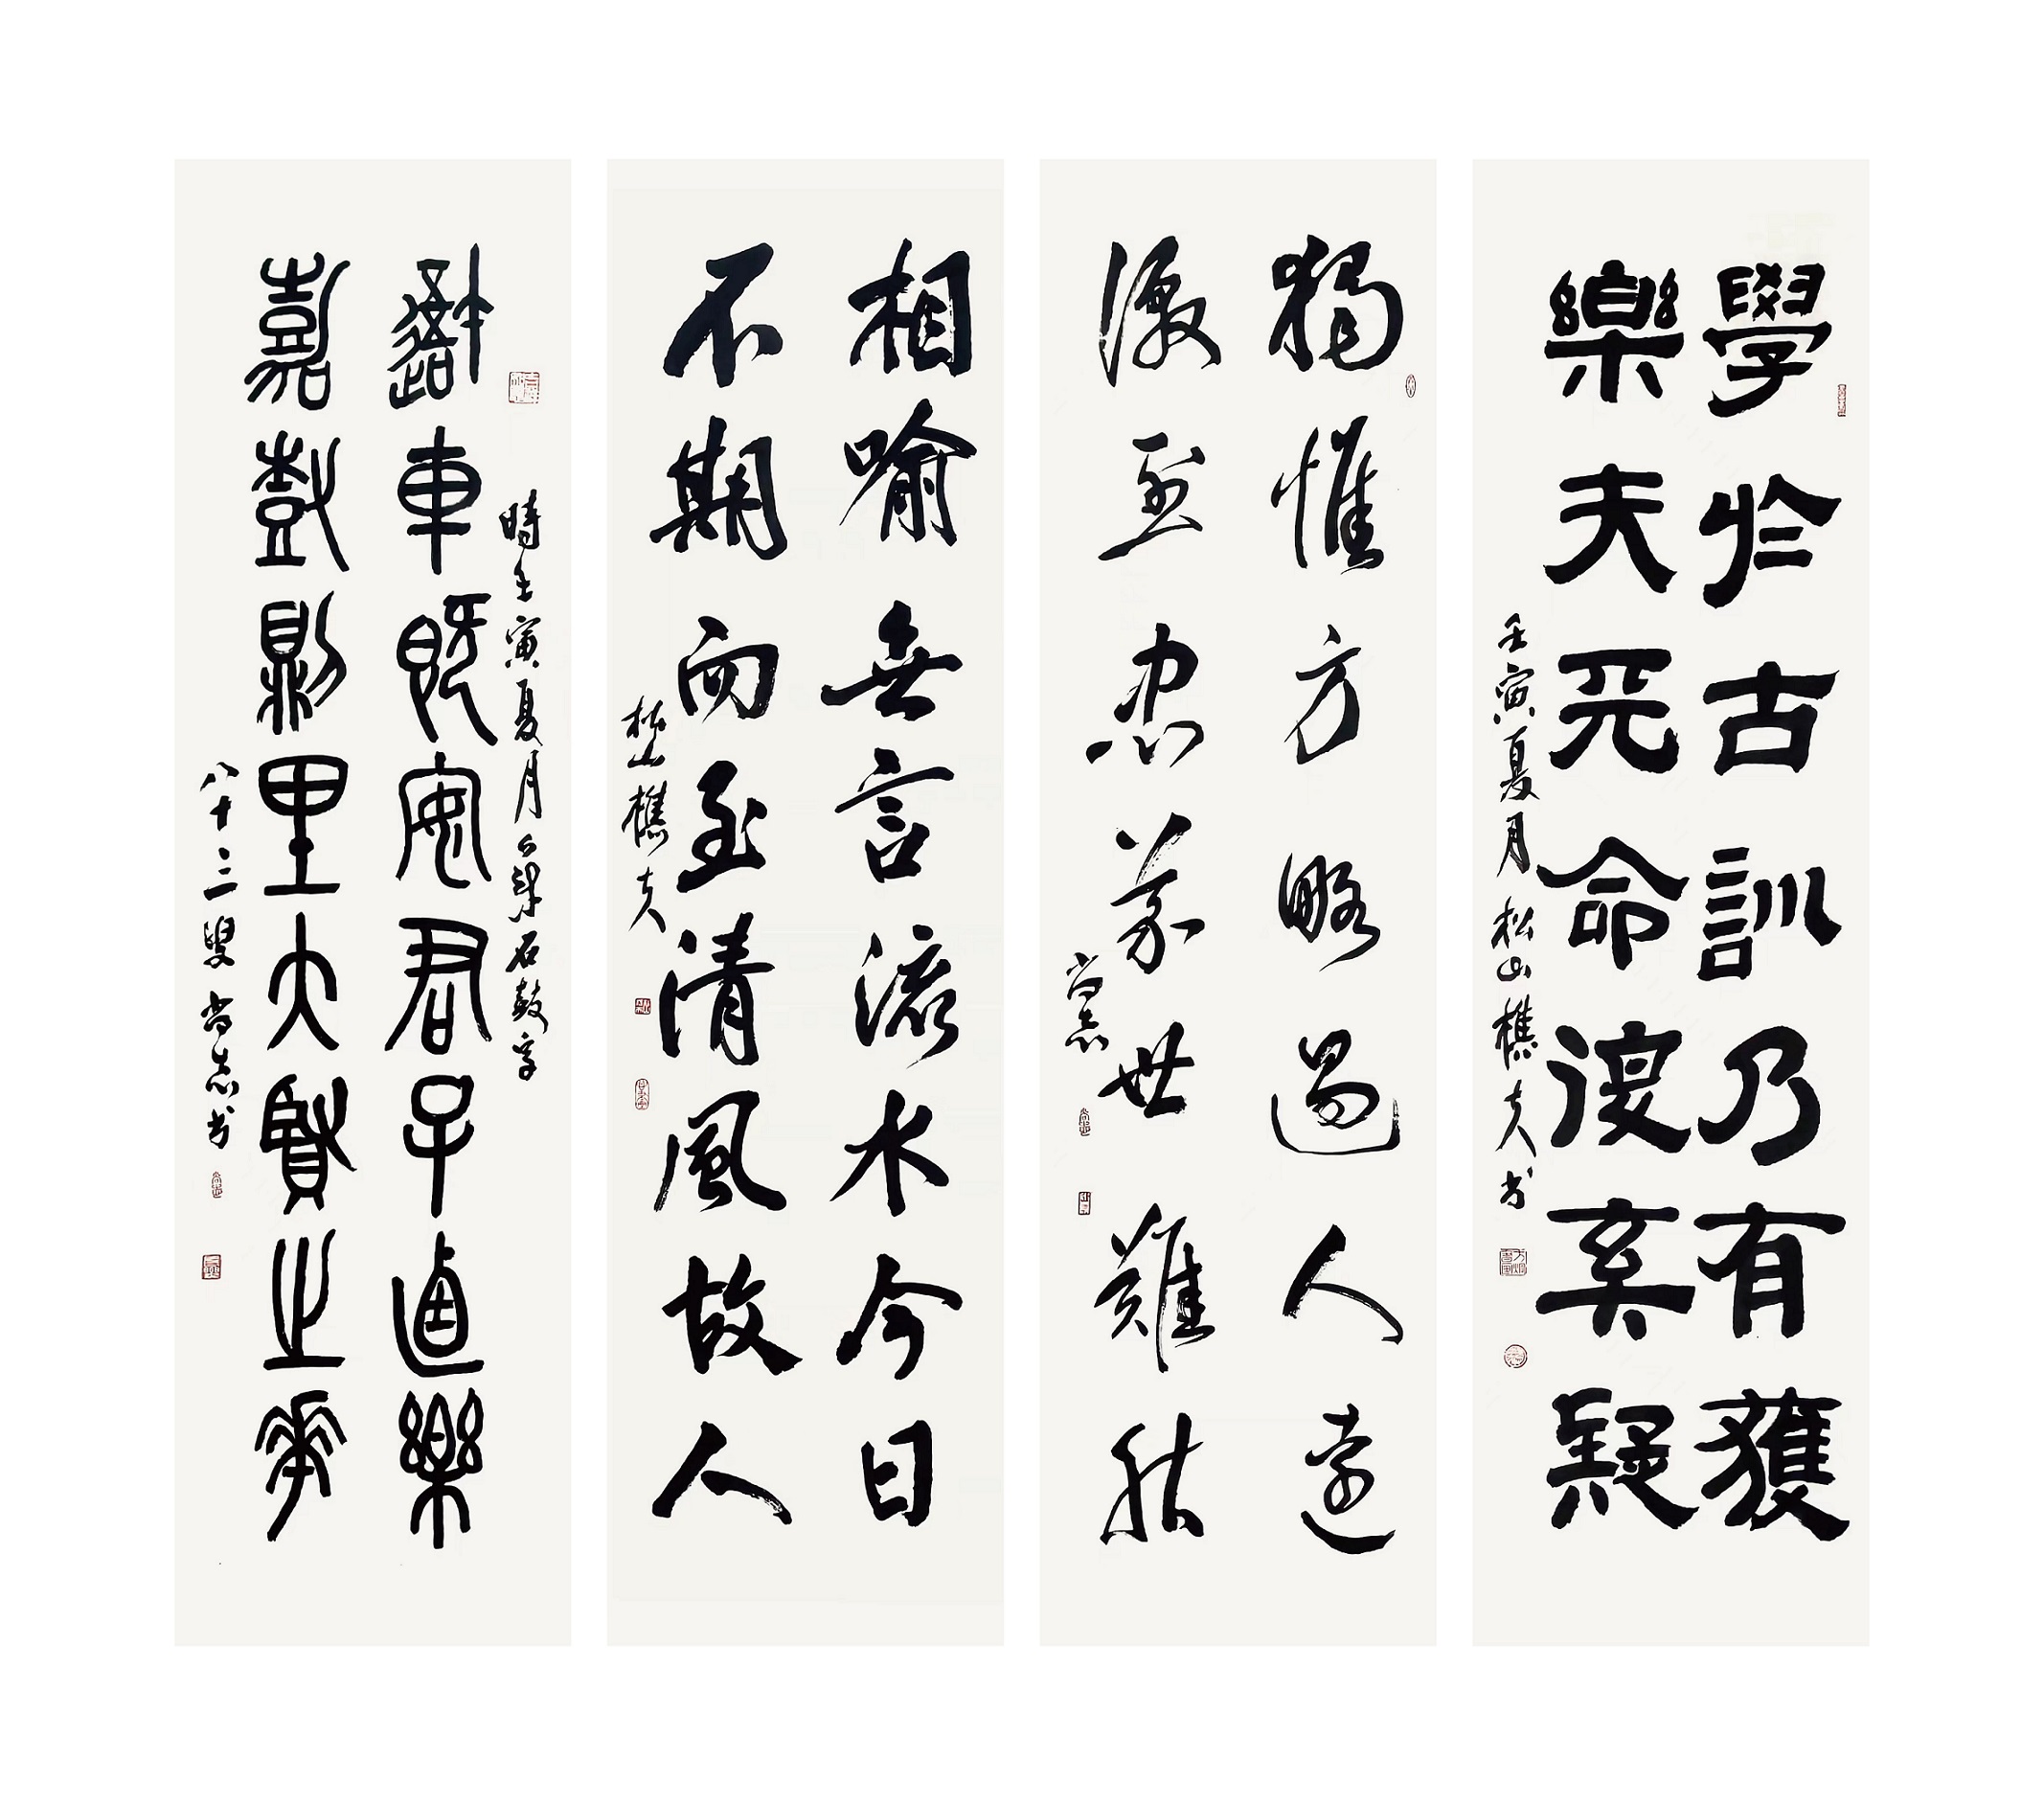 學於古訓乃有獲
樂夫天命復奚疑
壬寅夏月松山樵夫书
獨惟方略過人遠
激至忠義世難能
尚志
相喻無言流水今日
不期而至清風故人
松山樵夫
時壬寅夏月石鼓字
車既安君子迺樂
嘉樹則里大賢之華
八十三叟尚志书